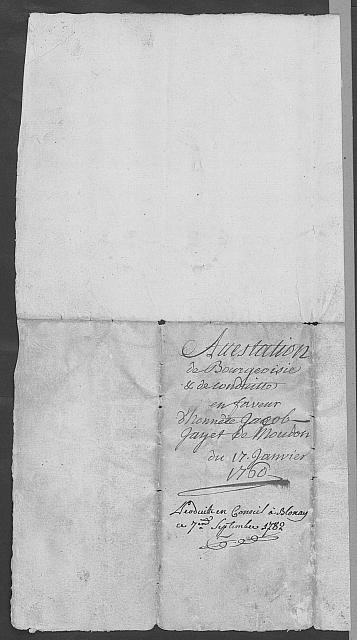 Attestation
de Bourgeoisie
& de conduitte
en faveur
d'honnête Jacob
Jayet de Moudon
du 17. Janvier
1760
Produite en Conseil à Blonay
ce 7me Septembre 1782